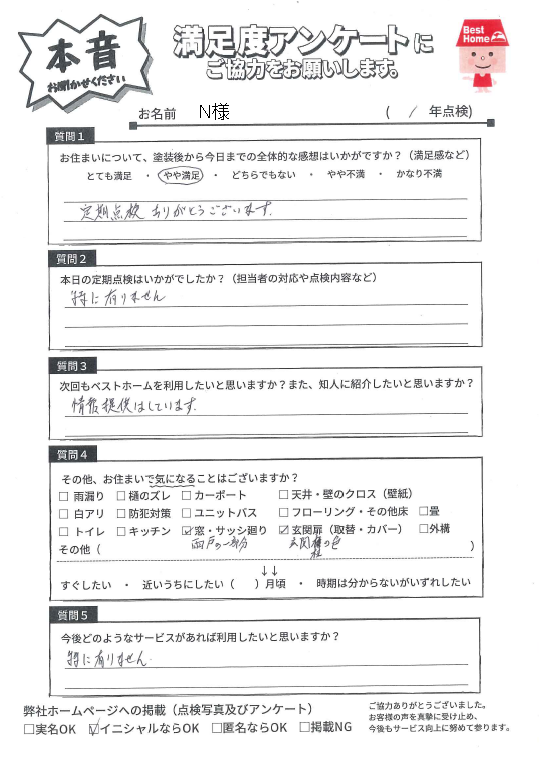 本音
お聞かせください
満足度アンケートに
ご協力をお願いします。
Best Home
お名前 N様 ( / 年点検)
質問1
お住まいについて、塗装後から今日までの全体的な感想はいかがですか?(満足感など)
とても満足 ・ やや満足 ・ どちらでもない ・ やや不満 ・ かなり不満
定期点検 ありがとうございます.
質問2
本日の定期点検はいかがでしたか?(担当者の対応や点検内容など)
特に有りません
質問3
次回もベストホームを利用したいと思いますか?また、知人に紹介したいと思いますか?
情報提供はしています.
質問4
その他、お住まいで気になることはございますか?
☐ 雨漏り ☐ 樋のズレ ☐ カーポート ☐ 天井・壁のクロス(壁紙)
☐ 白アリ ☐ 防犯対策 ☐ ユニットバス ☐ フローリング・その他床 ☐畳
☐ トイレ ☐ キッチン ☑ 窓・サッシ廻り ☑ 玄関扉(取替・カバー) ☐外構
その他( 雨戸の一部分 玄関 の色 )
柱
↓↓
すぐしたい ・ 近いうちにしたい( )月頃 ・ 時期は分からないがいずれしたい
質問5
今後どのようなサービスがあれば利用したいと思いますか?
特に有りません.
弊社ホームページへの掲載(点検写真及びアンケート)
☐実名OK ☑イニシャルならOK ☐匿名ならOK ☐掲載NG
ご協力ありがとうございました。
お客様の声を真摯に受け止め、
今後もサービス向上に努めて参ります。